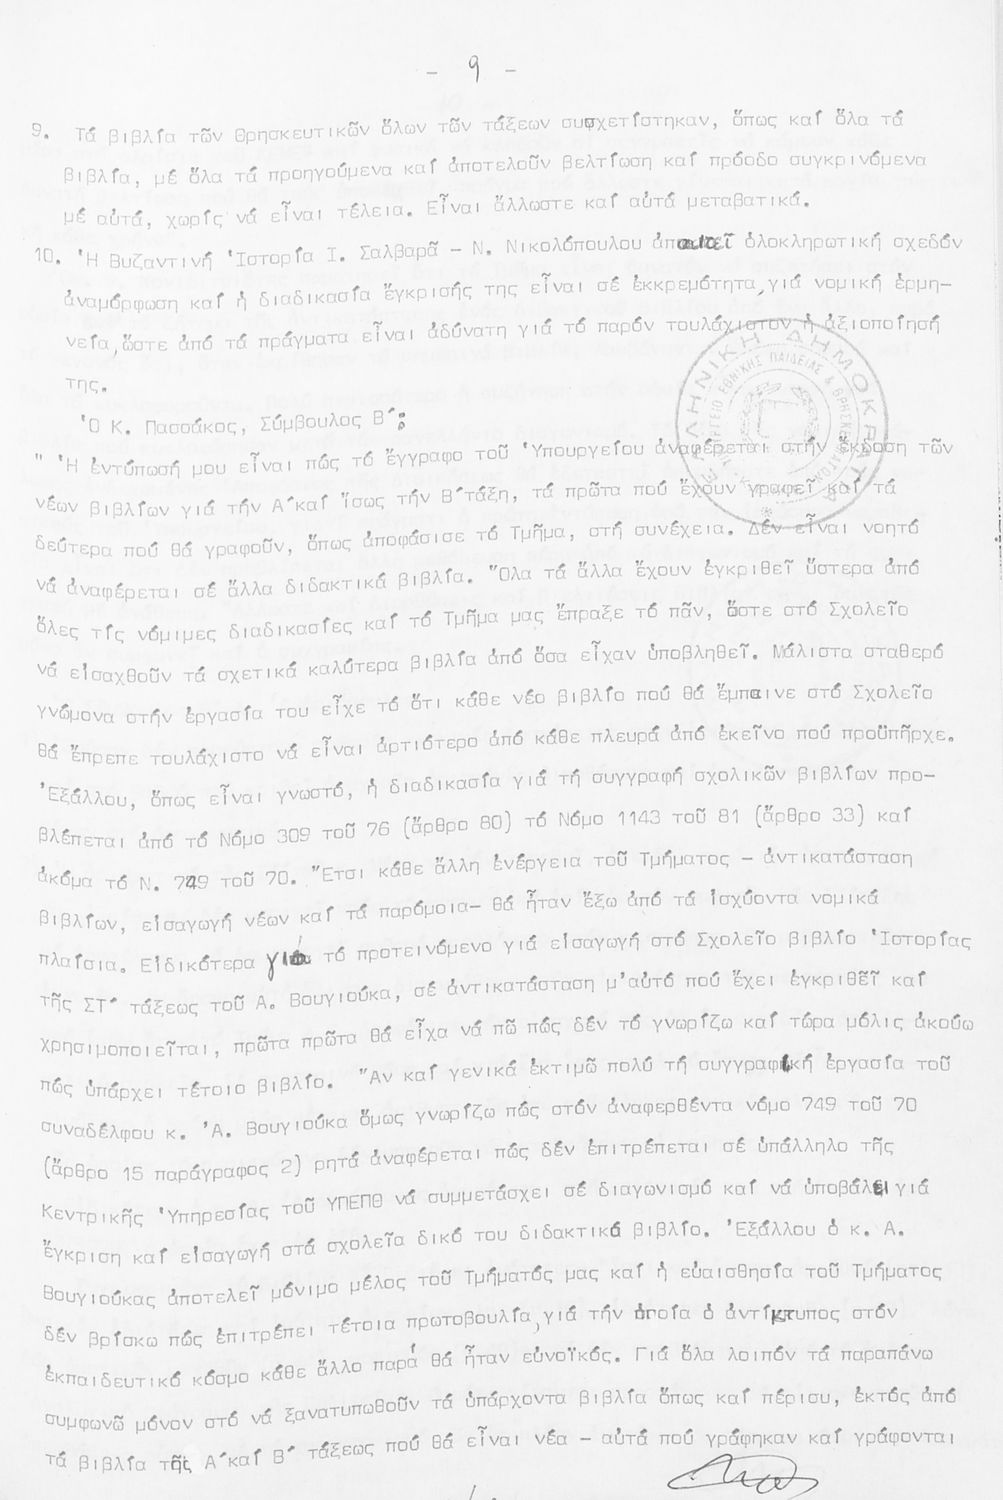 - 9 -
9. Τά βιβλία τῶν Θρησκευτικῶν ὅλων τῶν τάξεων συσχετίστηκαν, ὅπως καί ὅλα τά
βιβλία, μέ ὅλα τά προηγούμενα καί ἀποτελοῦν βελτίωση καί πρόοδο συγκρινόμενα
μέ αὐτά, χωρίς νά εἶναι τέλεια. Εἶναι ἄλλωστε καί αὐτά μεταβατικά.
10. Ἡ Βυζαντινή Ἱστορία Ι. Σαλβαρᾶ - Ν. Νικολόπουλου ἀπαιτεῖ ὁλοκληρωτική σχεδόν
ἀναμόρφωση καί ἡ διαδικασία ἔγκρισής της εἶναι σέ ἐκκρεμότητα, γιά νομική ἑρμη-
νεία, ὥστε ἀπό τά πράγματα εἶναι ἀδύνατη γιά τό παρόν τουλάχιστον ἡ ἀξιοποίησή
της.
Ὁ Κ. Πασσάκος, Σύμβουλος Β΄:
" Ἡ ἐντύπωσή μου εἶναι πώς τό ἔγγραφο τοῦ Ὑπουργείου ἀναφέρεται στήν ἔκδοση τῶν
νέων βιβλίων γιά τήν Α΄καί ἴσως τήν Β΄τάξη, τά πρῶτα πού ἔχουν γραφεῖ καί τά
δεύτερα πού θά γραφοῦν, ὅπως ἀποφάσισε τό Τμῆμα, στή συνέχεια. Δέν εἶναι νοητό
νά ἀναφέρεται σέ ἄλλα διδακτικά βιβλία. Ὅλα τά ἄλλα ἔχουν ἐγκριθεῖ ὕστερα ἀπό
ὅλες τίς νόμιμες διαδικασίες καί τό Τμῆμα μας ἔπραξε τό πᾶν, ὥστε στό Σχολεῖο
νά εἰσαχθοῦν τά σχετικά καλύτερα βιβλία ἀπό ὅσα εἶχαν ὑποβληθεῖ. Μάλιστα σταθερό
γνώμονα στήν ἐργασία του εἶχε τό ὅτι κάθε νέο βιβλίο πού θά ἔμπαινε στό Σχολεῖο
θά ἔπρεπε τουλάχιστο νά εἶναι ἀρτιότερο ἀπό κάθε πλευρά ἀπό ἐκεῖνο πού προϋπῆρχε.
Ἐξάλλου, ὅπως εἶναι γνωστό, ἡ διαδικασία γιά τή συγγραφή σχολικῶν βιβλίων προ-
βλέπεται ἀπό τό Νόμο 309 τοῦ 76 (ἄρθρο 80) τό Νόμο 1143 τοῦ 81 (ἄρθρο 33) καί
ἀκόμα τό Ν. 749 τοῦ 70. Ἔτσι κάθε ἄλλη ἐνέργεια τοῦ Τμήματος - ἀντικατάσταση
βιβλίων, εἰσαγωγή νέων καί τά παρόμοια- θά ἦταν ἔξω ἀπό τά ἰσχύοντα νομικά
πλαίσια. Εἰδικότερα γιά τό προτεινόμενο γιά εἰσαγωγή στό Σχολεῖο βιβλίο Ἱστορίας
τῆς ΣΤ΄ τάξεως τοῦ Α. Βουγιούκα, σέ ἀντικατάσταση μ'αὐτό πού ἔχει ἐγκριθεῖ καί
χρησιμοποιεῖται, πρῶτα πρῶτα θά εἶχα νά πῶ πώς δέν τό γνωρίζω καί τώρα μόλις ἀκούω
πώς ὑπάρχει τέτοιο βιβλίο. Ἄν καί γενικά ἐκτιμῶ πολύ τή συγγραφική ἐργασία τοῦ
συναδέλφου κ. Ἀ. Βουγιούκα ὅμως γνωρίζω πώς στόν ἀναφερθέντα νόμο 749 τοῦ 70
(ἄρθρο 15 παράγραφος 2) ρητά ἀναφέρεται πώς δέν ἐπιτρέπεται σέ ὑπάλληλο τῆς
Κεντρικῆς Ὑπηρεσίας τοῦ ΥΠΕΠΘ νά συμμετάσχει σέ διαγωνισμό καί νά ὑποβάλει γιά
ἔγκριση καί εἰσαγωγή στά σχολεῖα δικό του διδακτικό βιβλίο. Ἐξάλλου ὁ κ. Α.
Βουγιούκας ἀποτελεῖ μόνιμο μέλος τοῦ Τμήματός μας καί ἡ εὐαισθησία τοῦ Τμήματος
δέν βρίσκω πώς ἐπιτρέπει τέτοια πρωτοβουλία, γιά τήν ὁποία ὁ ἀντίκτυπος στόν
ἐκπαιδευτικό κόσμο κάθε ἄλλο παρά θά ἦταν εὐνοϊκός. Γιά ὅλα λοιπόν τά παραπάνω
συμφωνῶ μόνον στό νά ξανατυπωθοῦν τά ὑπάρχοντα βιβλία ὅπως καί πέρισυ, ἐκτός ἀπό
τά βιβλία τῆς Α΄καί Β΄ τάξεως πού θά εἶναι νέα - αὐτά πού γράφηκαν καί γράφονται
ΕΛΛΗΝΙΚΗ ΔΗΜΟΚΡΑΤΙΑ